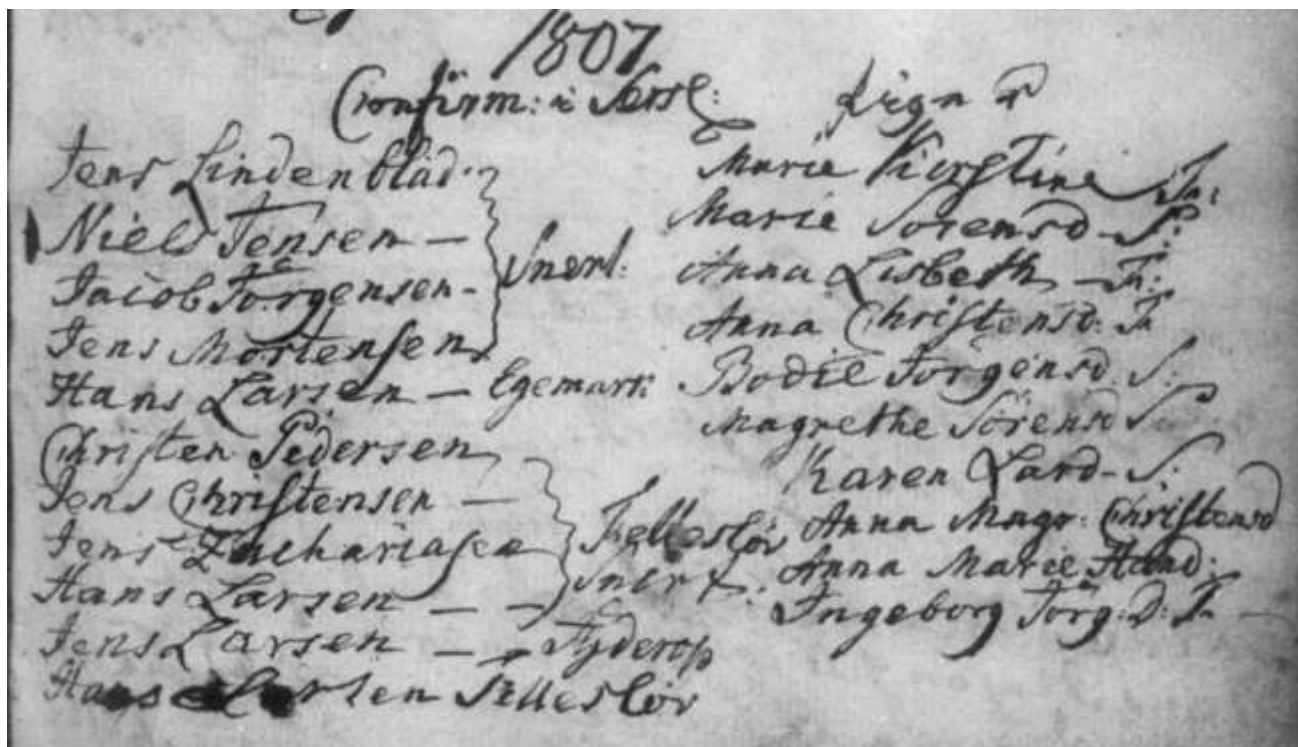 1807
Confirm: i Sersl:
Jens Lindenblad
Niels Jensen —
Jacob Jörgensen - Snerl:
Jens Mortensen
Hans Larsen — Egemark:
Christen Pedersen
Jens Christensen —
Jens Zachariasen Fellesløv
Hans Larsen — — Snert.
Jens Larsen — — Fyderop
Hans Larsen Fellesløv
Pigner
Marie Kirstine Fn:
Marie Sorensd S:
Anna Lisbeth — F:
Anna Christensd: Fn
Bodil Jörgensd. S:
Magrethe Sörensd S:
Karen Larsd - S:
Anna Magr: Christensd
Anna Marie Hansd:
Ingeborg Jörg: D: F.